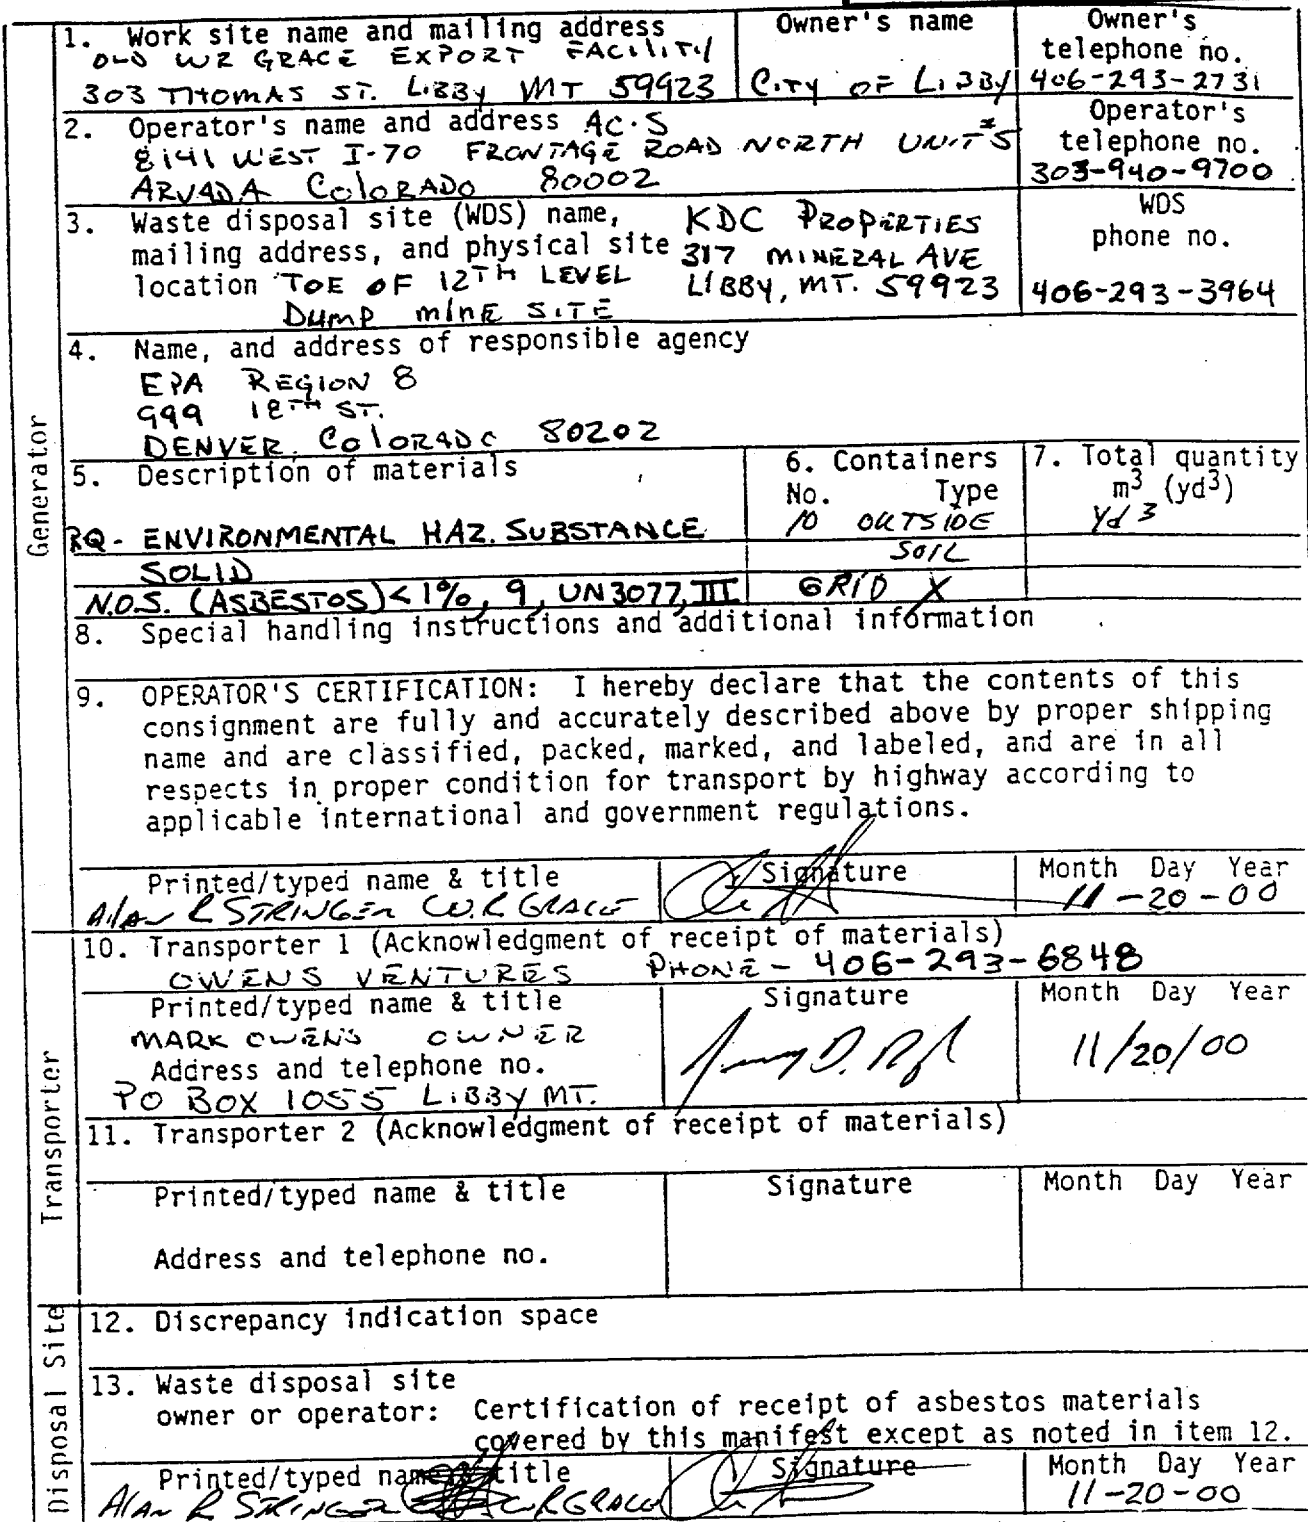 1. Work site name and mailing address
OLD WR GRACE EXPORT FACILITY
303 THOMAS ST. LIBBY MT 59923
Owner's name
CITY OF LIBBY
Owner's
telephone no.
406-293-2731
2. Operator's name and address AC·S
8141 WEST I-70 FRONTAGE ROAD NORTH UNIT #5
ARVADA COLORADO 80002
Operator's
telephone no.
303-940-9700
3. Waste disposal site (WDS) name,
mailing address, and physical site
location TOE OF 12TH LEVEL
DUMP MINE SITE
KDC PROPERTIES
317 MINERAL AVE
LIBBY, MT. 59923
WDS
phone no.
406-293-3964
4. Name, and address of responsible agency
EPA REGION 8
999 18TH ST.
DENVER, COLORADO 80202
Generator
5. Description of materials
RQ - ENVIRONMENTAL HAZ. SUBSTANCE
SOLID
N.O.S. (ASBESTOS) < 1%, 9, UN3077, III
6. Containers
No. Type
10 OUTSIDE
SOIL
GRID X
7. Total quantity
m3 (yd3)
Yd 3
8. Special handling instructions and additional information
9. OPERATOR'S CERTIFICATION: I hereby declare that the contents of this
consignment are fully and accurately described above by proper shipping
name and are classified, packed, marked, and labeled, and are in all
respects in proper condition for transport by highway according to
applicable international and government regulations.
Printed/typed name & title
Alan R STRINGER W.R GRACE
Signature
Month Day Year
11-20-00
Transporter
10. Transporter 1 (Acknowledgment of receipt of materials)
OWENS VENTURES PHONE - 406-293-6848
Printed/typed name & title
MARK OWENS OWNER
Address and telephone no.
PO BOX 1055 LIBBY MT.
Signature
Month Day Year
11/20/00
11. Transporter 2 (Acknowledgment of receipt of materials)
Printed/typed name & title
Address and telephone no.
Signature
Month Day Year
Disposal Site
12. Discrepancy indication space
13. Waste disposal site
owner or operator: Certification of receipt of asbestos materials
covered by this manifest except as noted in item 12.
Printed/typed name & title
Alan R STRINGER WR GRACE
Signature
Month Day Year
11-20-00